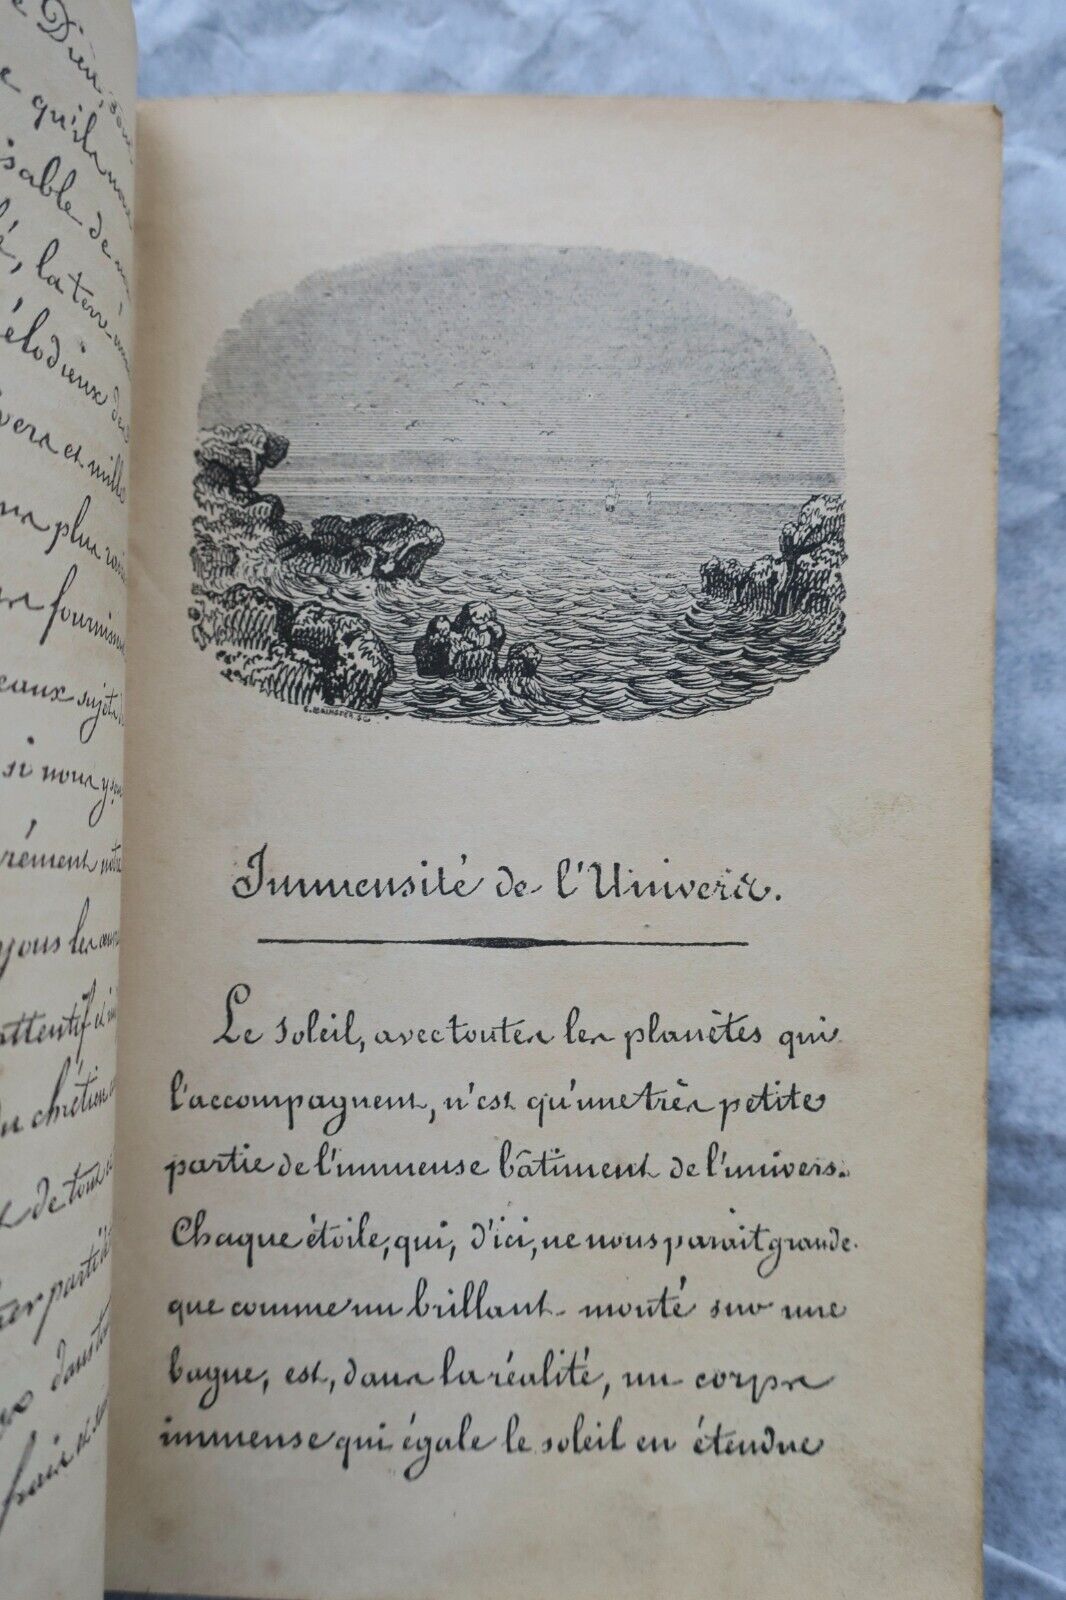 e Dieu, 
e qu'il 
isable de 
é, la terre
élodieux des
vers et mille
plus 
fournissent
eaux sujets d
si nous y
rément notre
yons les 
attentif et 
du chrétien
de tous
par parti
dans
frais et
G. MALHSTER SC.
Immensité de l'Univers.
Le soleil, avec toutes les planètes qui
l'accompagnent, n'est qu'une très petite
partie de l'immense bâtiment de l'univers.
Chaque étoile, qui, d'ici, ne nous parait grande
que comme un brillant monté sur une
bague, est, dans la réalité, un corps
immense qui égale le soleil en étendue